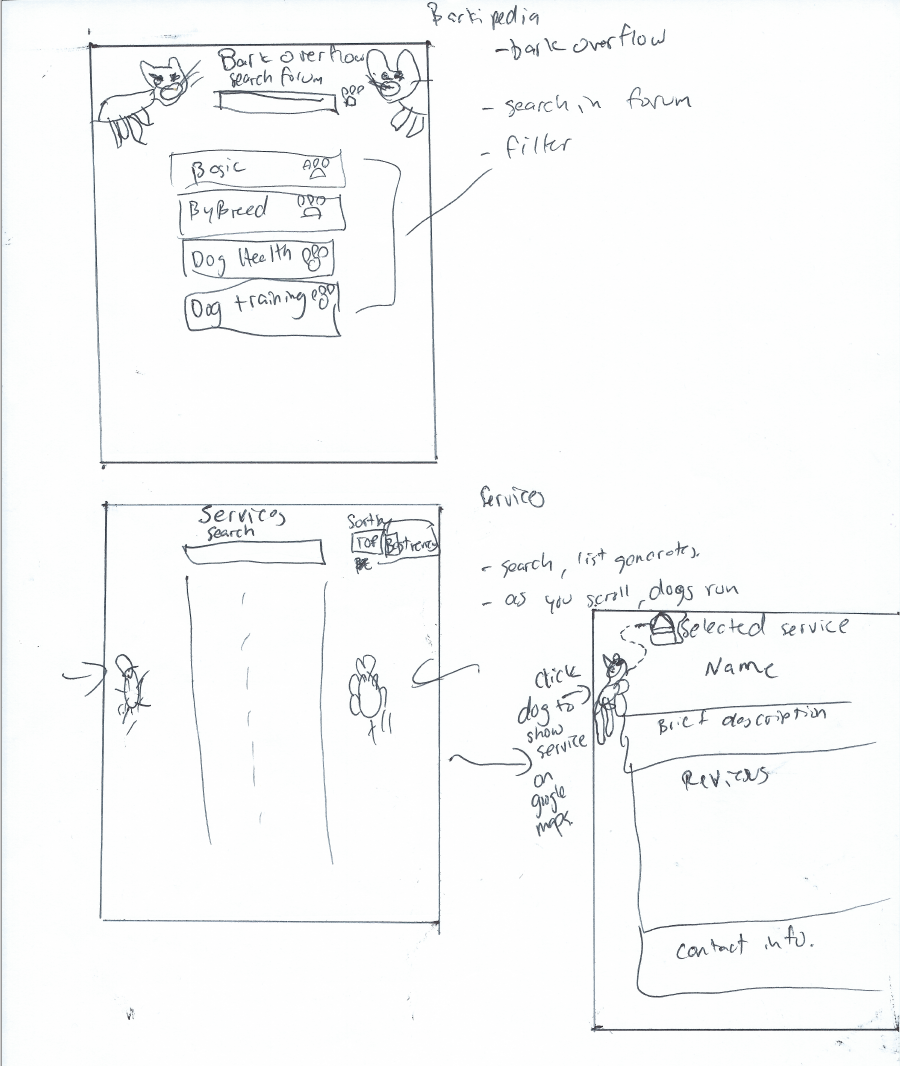 Barkipedia
- bark overflow
- search in forum
- filter
Bark overflow
search forum
Basic
By Breed
Dog Health
Dog training
Services
search
Sort by
TOP
Best reviews
Services
- search, list generates.
- as you scroll, dogs run
Click
dog to
show
service
on
google
maps.
Selected service
Name
Brief description
Reviews
Contact info.